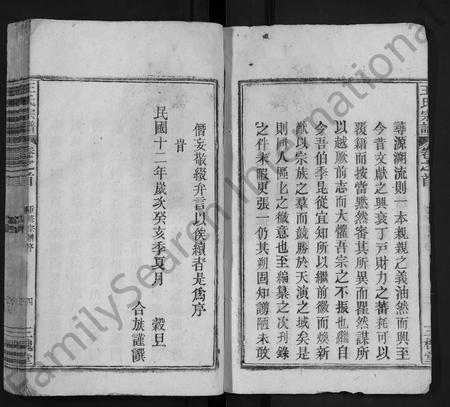 王氏宗譜
卷之首
三槐堂
尋源溯流則一本親親之義油然而興至
今昔文獻之興衰丁戸財力之蕃耗可以
覆籍而按當黙然審其所異而瞿然謀所
以越厥前志而大懼吾宗之不振也繼自
今吾伯季昆從宜知所以繼前徽而煥新
猷以宗族之羣而競勝於天演之域矣是
則同人區區之微意也至編纂之次刊錄
之件未暇更張一仍其朔固知謭陋未敢
僭妄敬綴弁言以俟續者是爲序
旹
民國十二年歲次癸亥季夏月 榖旦
合族謹譔
王氏宗譜
卷之首
四
三槐堂
FamilySearch International